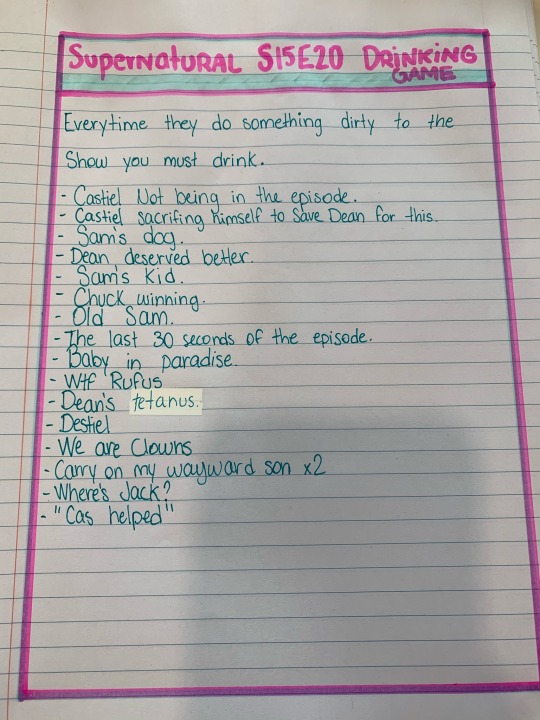 Supernatural S15E20 Drinking
Game
Everytime they do something dirty to the
Show you must drink.
- Castiel Not being in the episode.
- Castiel sacrifing himself to Save Dean for this.
- Sam's dog.
- Dean deserved better.
- Sam's Kid.
- Chuck winning.
- Old Sam.
- The last 30 seconds of the episode.
- Baby in paradise.
- Wtf Rufus
- Dean's tetanus.
- Destiel
- We are Clowns
- Carry on my wayward son x2
- Where's Jack?
- "Cas helped"